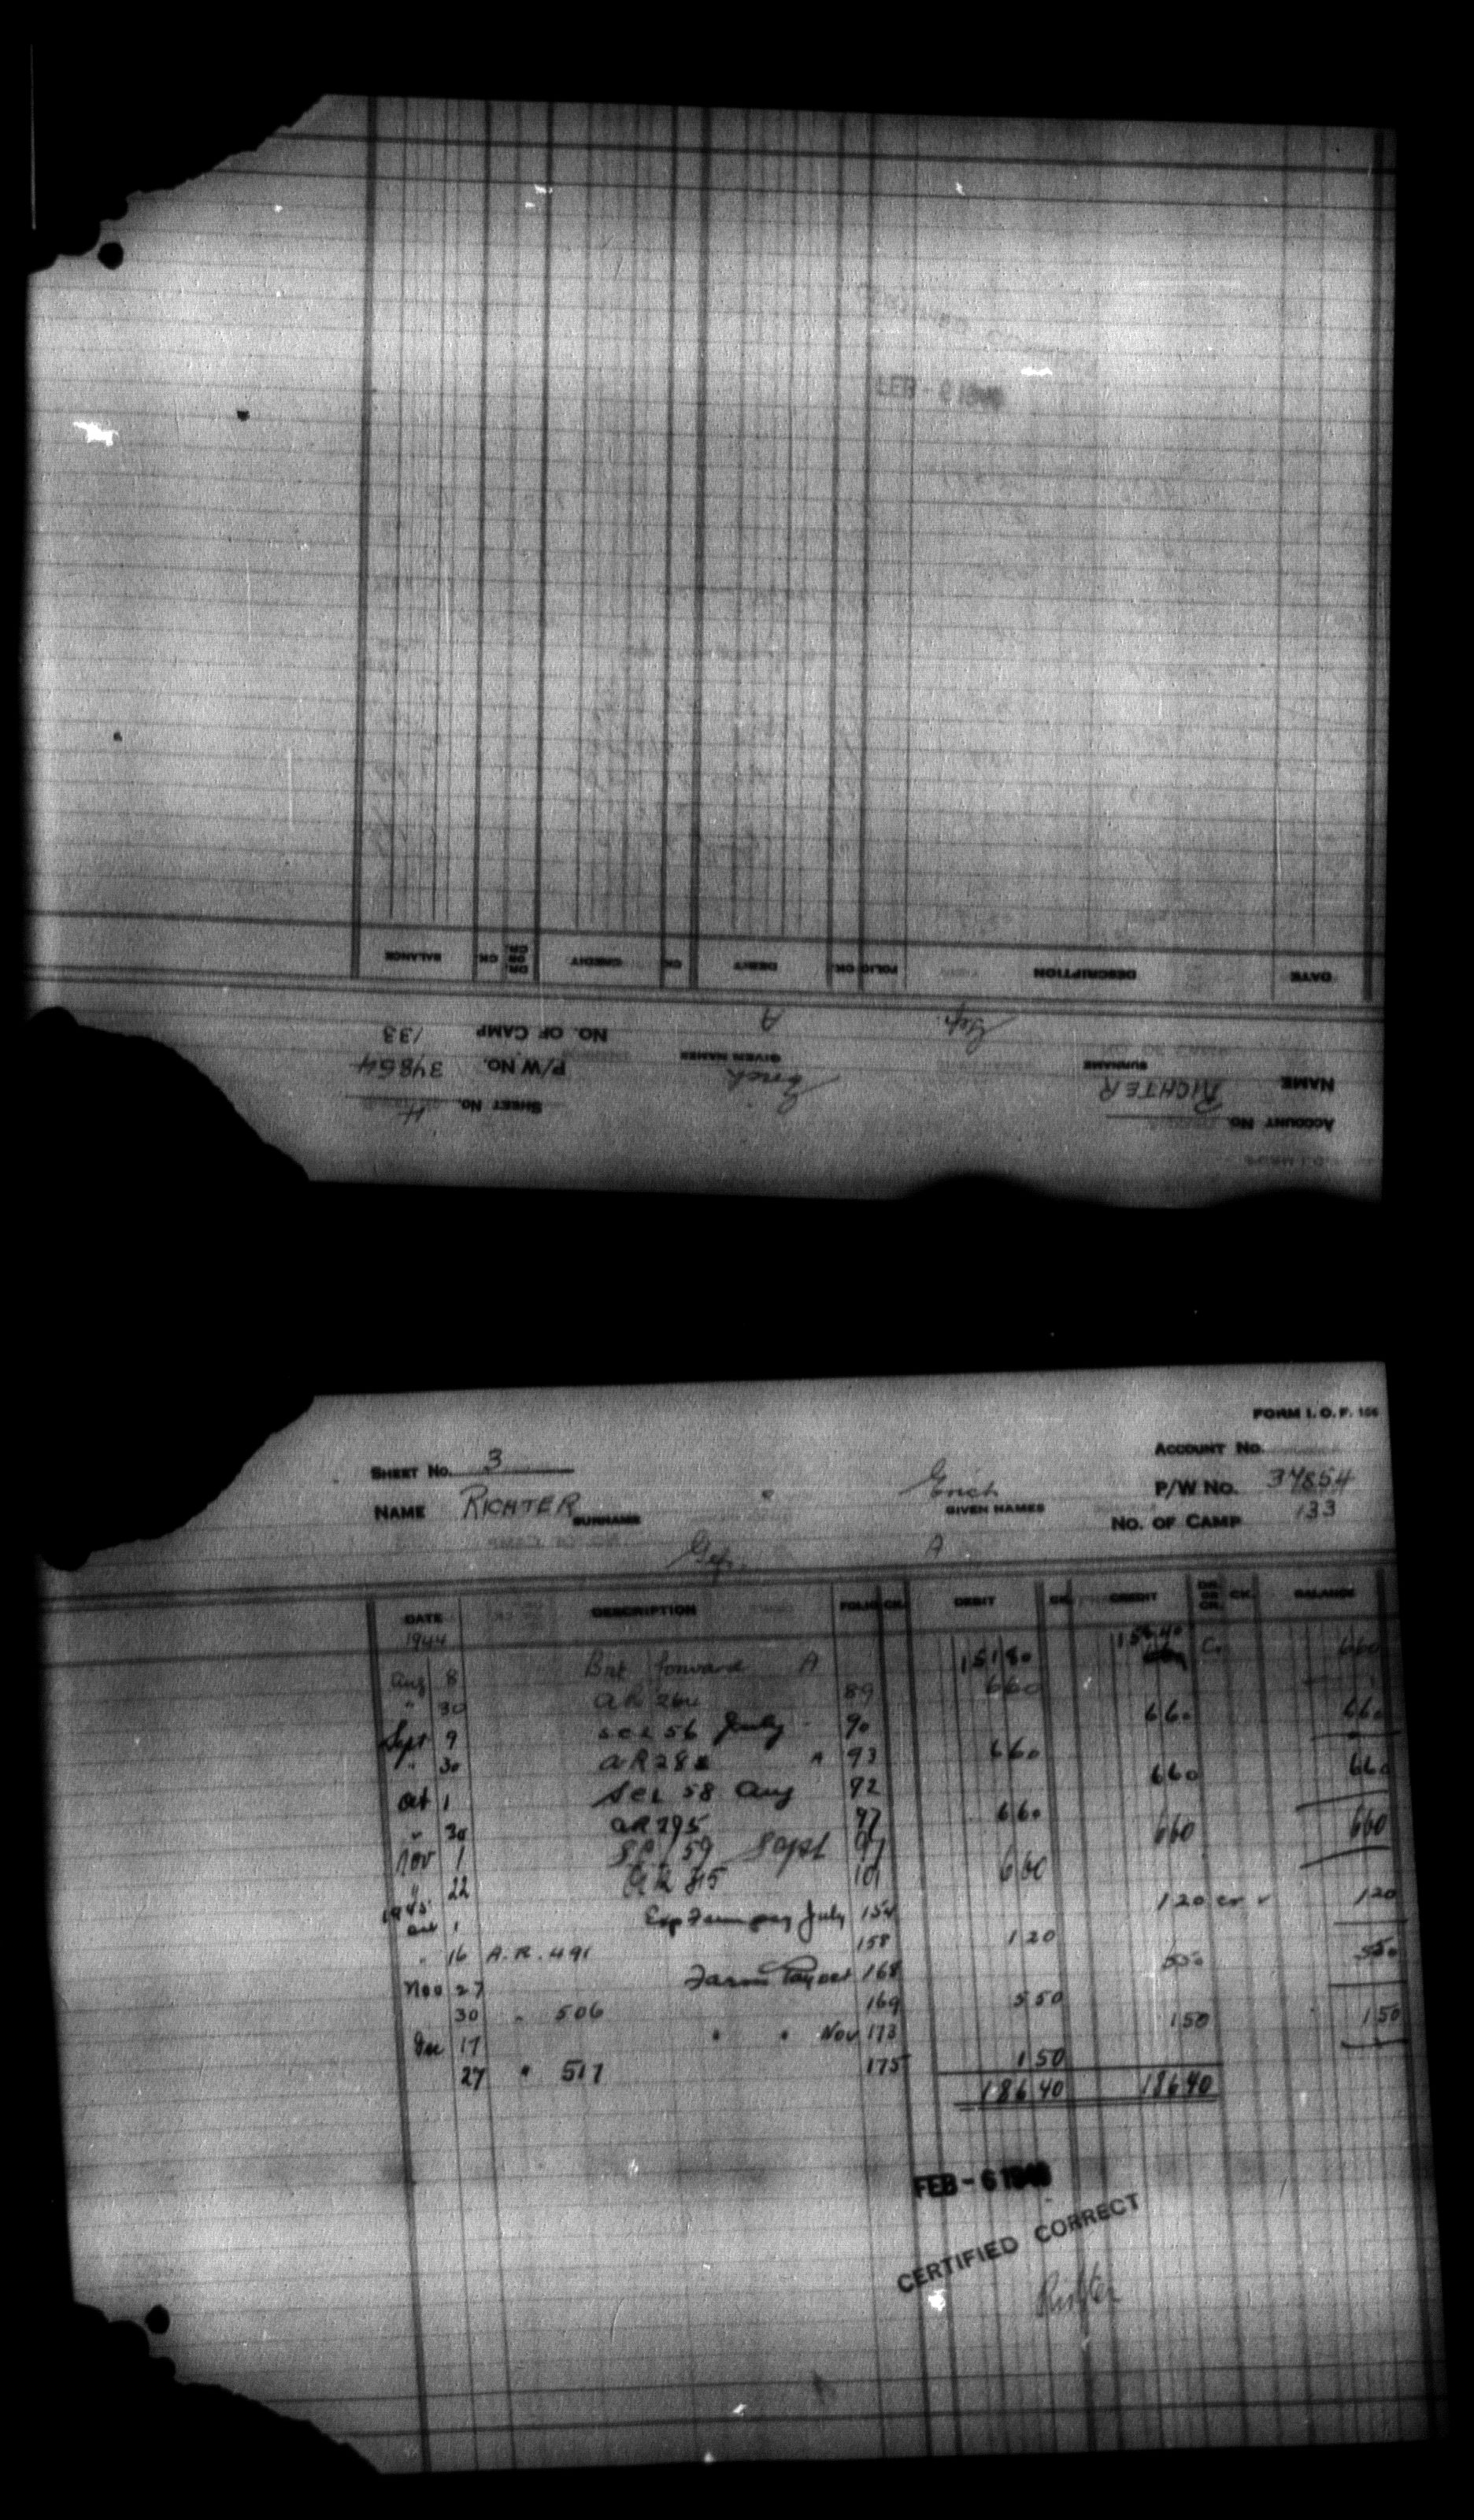 ACCOUNT No.
SHEET No. 4
NAME RICHTER SURNAME Erich GIVEN NAMES P/W No. 37854
Gefr. A NO. OF CAMP 133
DATE DESCRIPTION FOLIO CK. DEBIT CK. CREDIT DR. OR CR. CK. BALANCE
FORM I. O. F. 106
SHEET No. 3 ACCOUNT No.
NAME RICHTER SURNAME Erich GIVEN NAMES P/W No. 37854
NO. OF CAMP 133
Gefr. A
DATE DESCRIPTION FOLIO CK. DEBIT CK. CREDIT DR. OR CR. CK. BALANCE
1944
Aug 8 Brt forward A 151 80 158 40 Cr 6 60
" 30 AR 89 6 60
Sept 9 56 July 90 6 60 6 60
" 30 AR 28 A 93 6 60
Oct 1 58 Aug 92 6 60 6 60
" 30 AR 295 97 6 60
Nov 1 59 Sept 97 6 60 6 60
" 22 AR 315 101 6 60
1945
1 July 154 1 20 cr 1 20
" 16 A.R. 491 158 1 20
Nov 27 Farm Pay Oct 168 5 50 5 50
30 " 506 169 5 50
Dec 17 " " Nov 173 1 50 1 50
27 " 517 175 1 50
186 40 186 40
FEB - 6 1946
CERTIFIED CORRECT
Richter